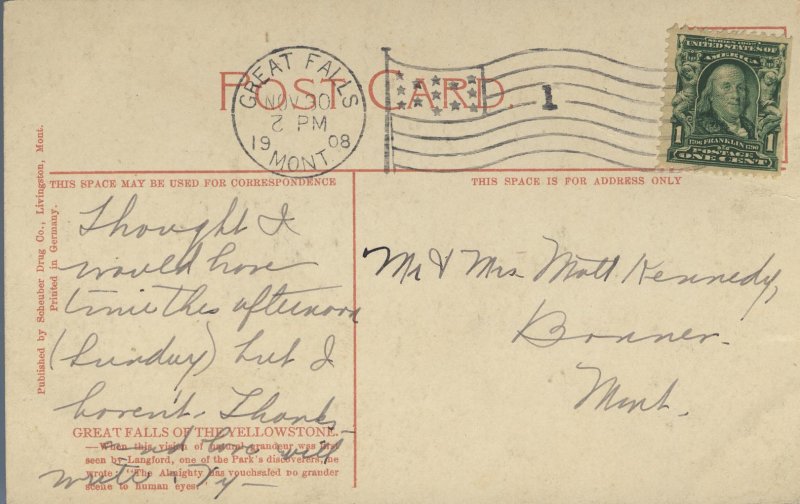 POST CARD.
GREAT FALLS
NOV 30
2 PM
1908
MONT
1
SERIES 1902
UNITED STATES OF
AMERICA
1706 FRANKLIN 1790
1 POSTAGE 1
ONE CENT
THIS SPACE MAY BE USED FOR CORRESPONDENCE
THIS SPACE IS FOR ADDRESS ONLY
Published by Scheuber Drug Co., Livingston, Mont.
Printed in Germany.
Thought I
would have
time this afternoon
(Sunday) but I
haven't. Thanks
and love will
write. Ty-
Mr & Mrs Matt Kennedy,
Bonner.
Mont.
GREAT FALLS OF THE YELLOWSTONE.
—When this vision of natural grandeur was first
seen by Langford, one of the Park's discoverers, he
wrote: "The Almighty has vouchsafed no grander
scene to human eyes."